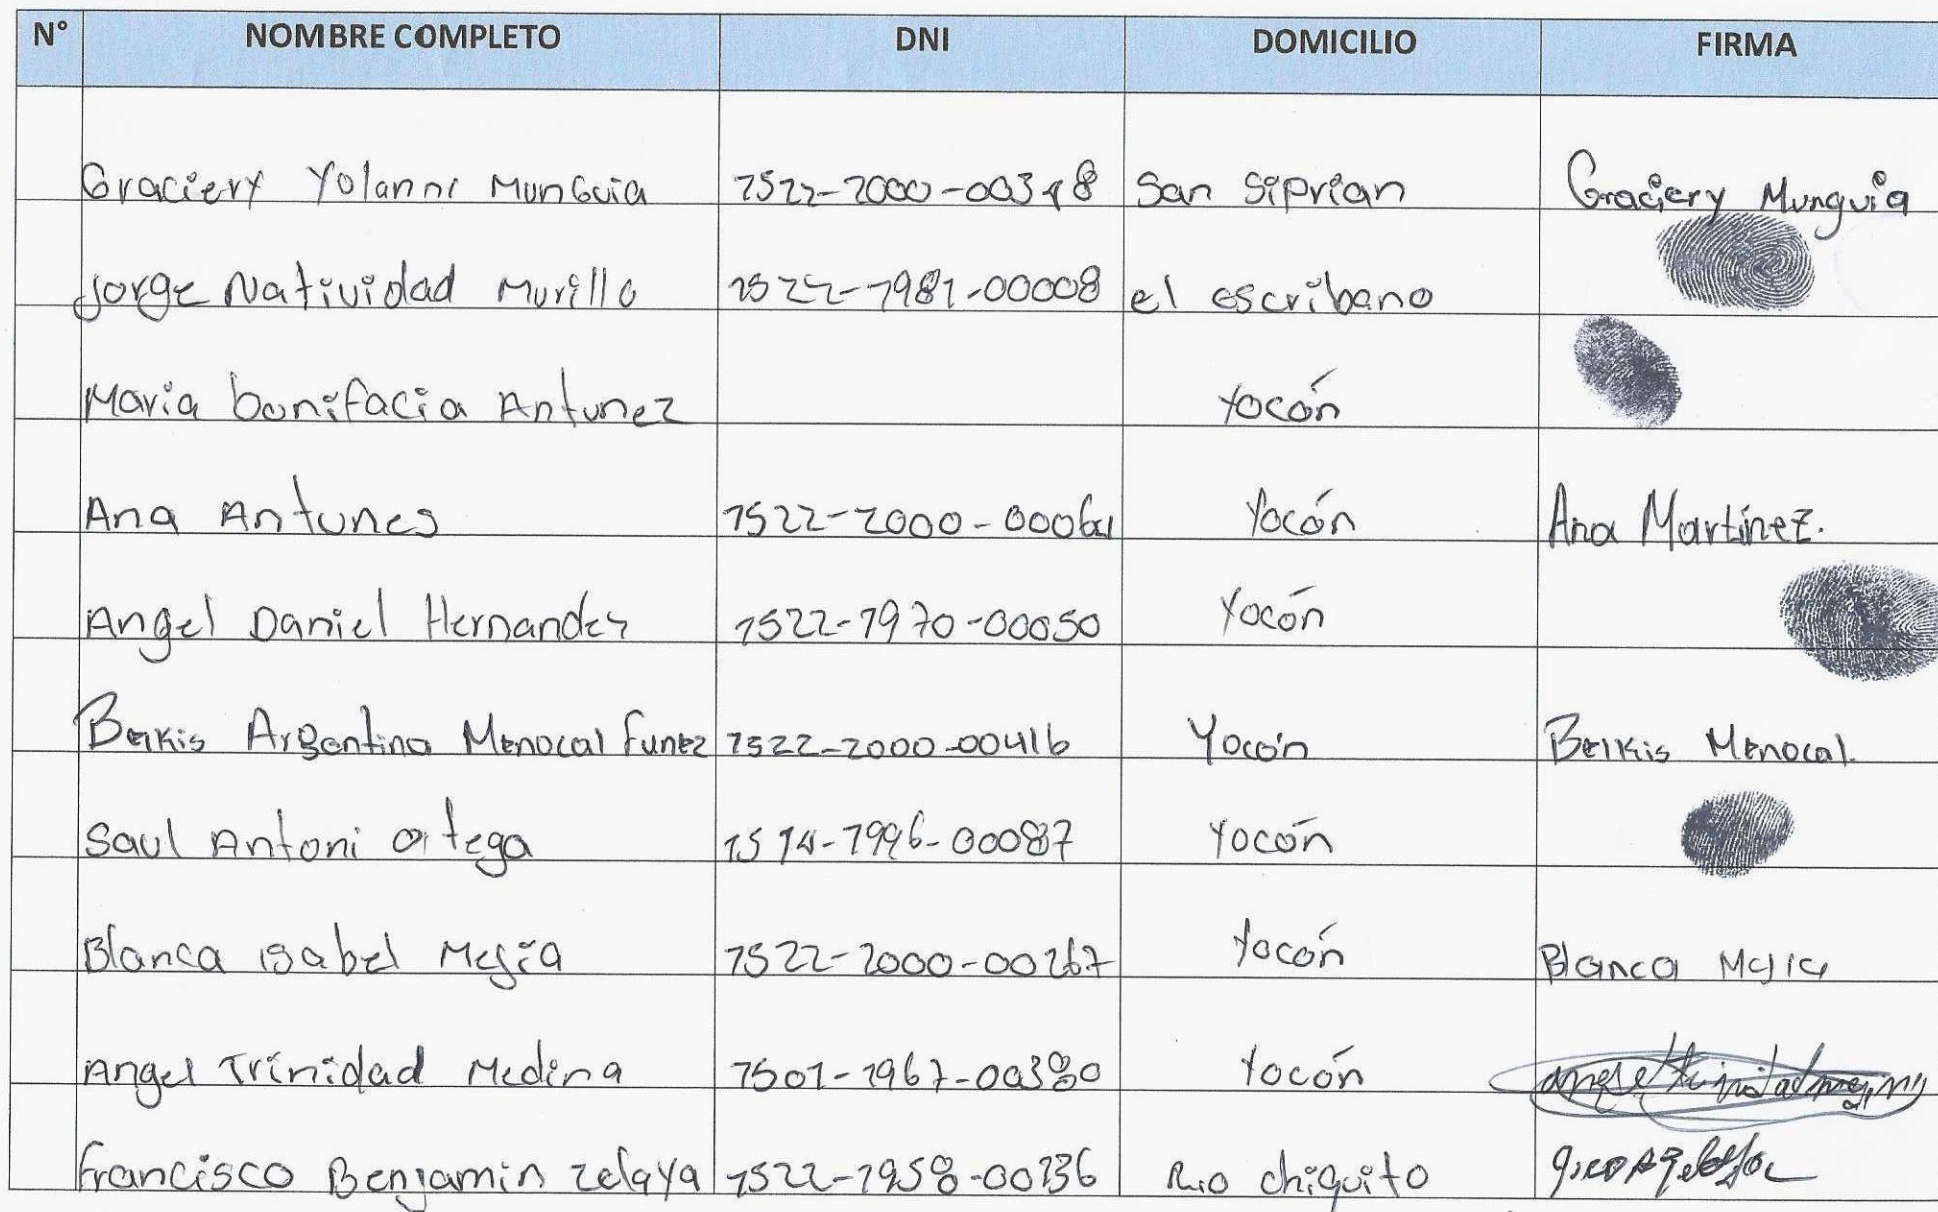 N° NOMBRE COMPLETO DNI DOMICILIO FIRMA
Graciery Yolanni Munguia 1522-2000-00348 San Siprian Graciery Munguia
Jorge Natividad Murillo 1522-1981-00008 el escribano
Maria bonifacia Antunez Yocón
Ana Antunes 1522-2000-00061 Yocón Ana Martinez.
Angel Daniel Hernandez 1522-1970-00050 Yocón
Beikis Argentina Menocal Funez 1522-2000-00416 Yocón Belkis Menocal.
Saul Antoni ortega 1514-1996-00087 Yocón
Blanca isabel Mejia 1522-2000-00267 Yocón Blanca Mejia
Angel Trinidad Medina 1501-1967-00380 Yocón
Francisco Benjamin zelaya 1522-1958-00136 Rio chiquito